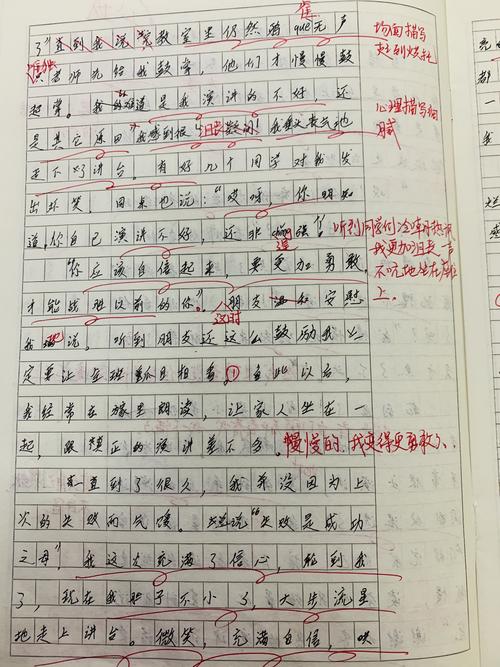 了"直到我说完教室里仍然鸦que无声
雀
只有老师先给我鼓掌，他们才慢慢鼓
起掌。我的难道是我演讲的不好，还
是其它原因"我感到很沮丧
走下了讲台。有好几个同学对我发
出坏笑，同桌也说："哎呀，你明知
道你自己演讲不好，还非逞强！
"你应该自信起来，要更加勇敢，
才能战胜以前的你。"朋友温和安慰
这时
我地说。听到朋友还这么鼓励我，
定要让全班刮目相看。自此以后，
我经常在家里朗读，让家人坐在一
起，跟真正的演讲差不多。慢慢的，我变得更勇敢了、
一直到了很久，我并没因为上
次的失败而气馁。"失败是成功
之母"，我这次充满了信心，轮到我
了，现在我胆子不小了，大步流星
地走上讲台。微笑，充满自信，哄
场面描写
起到烘托
心理描写细
腻
听到同学们冷嘲热讽
我更加沮丧一声
不吭地坐在座位
上。